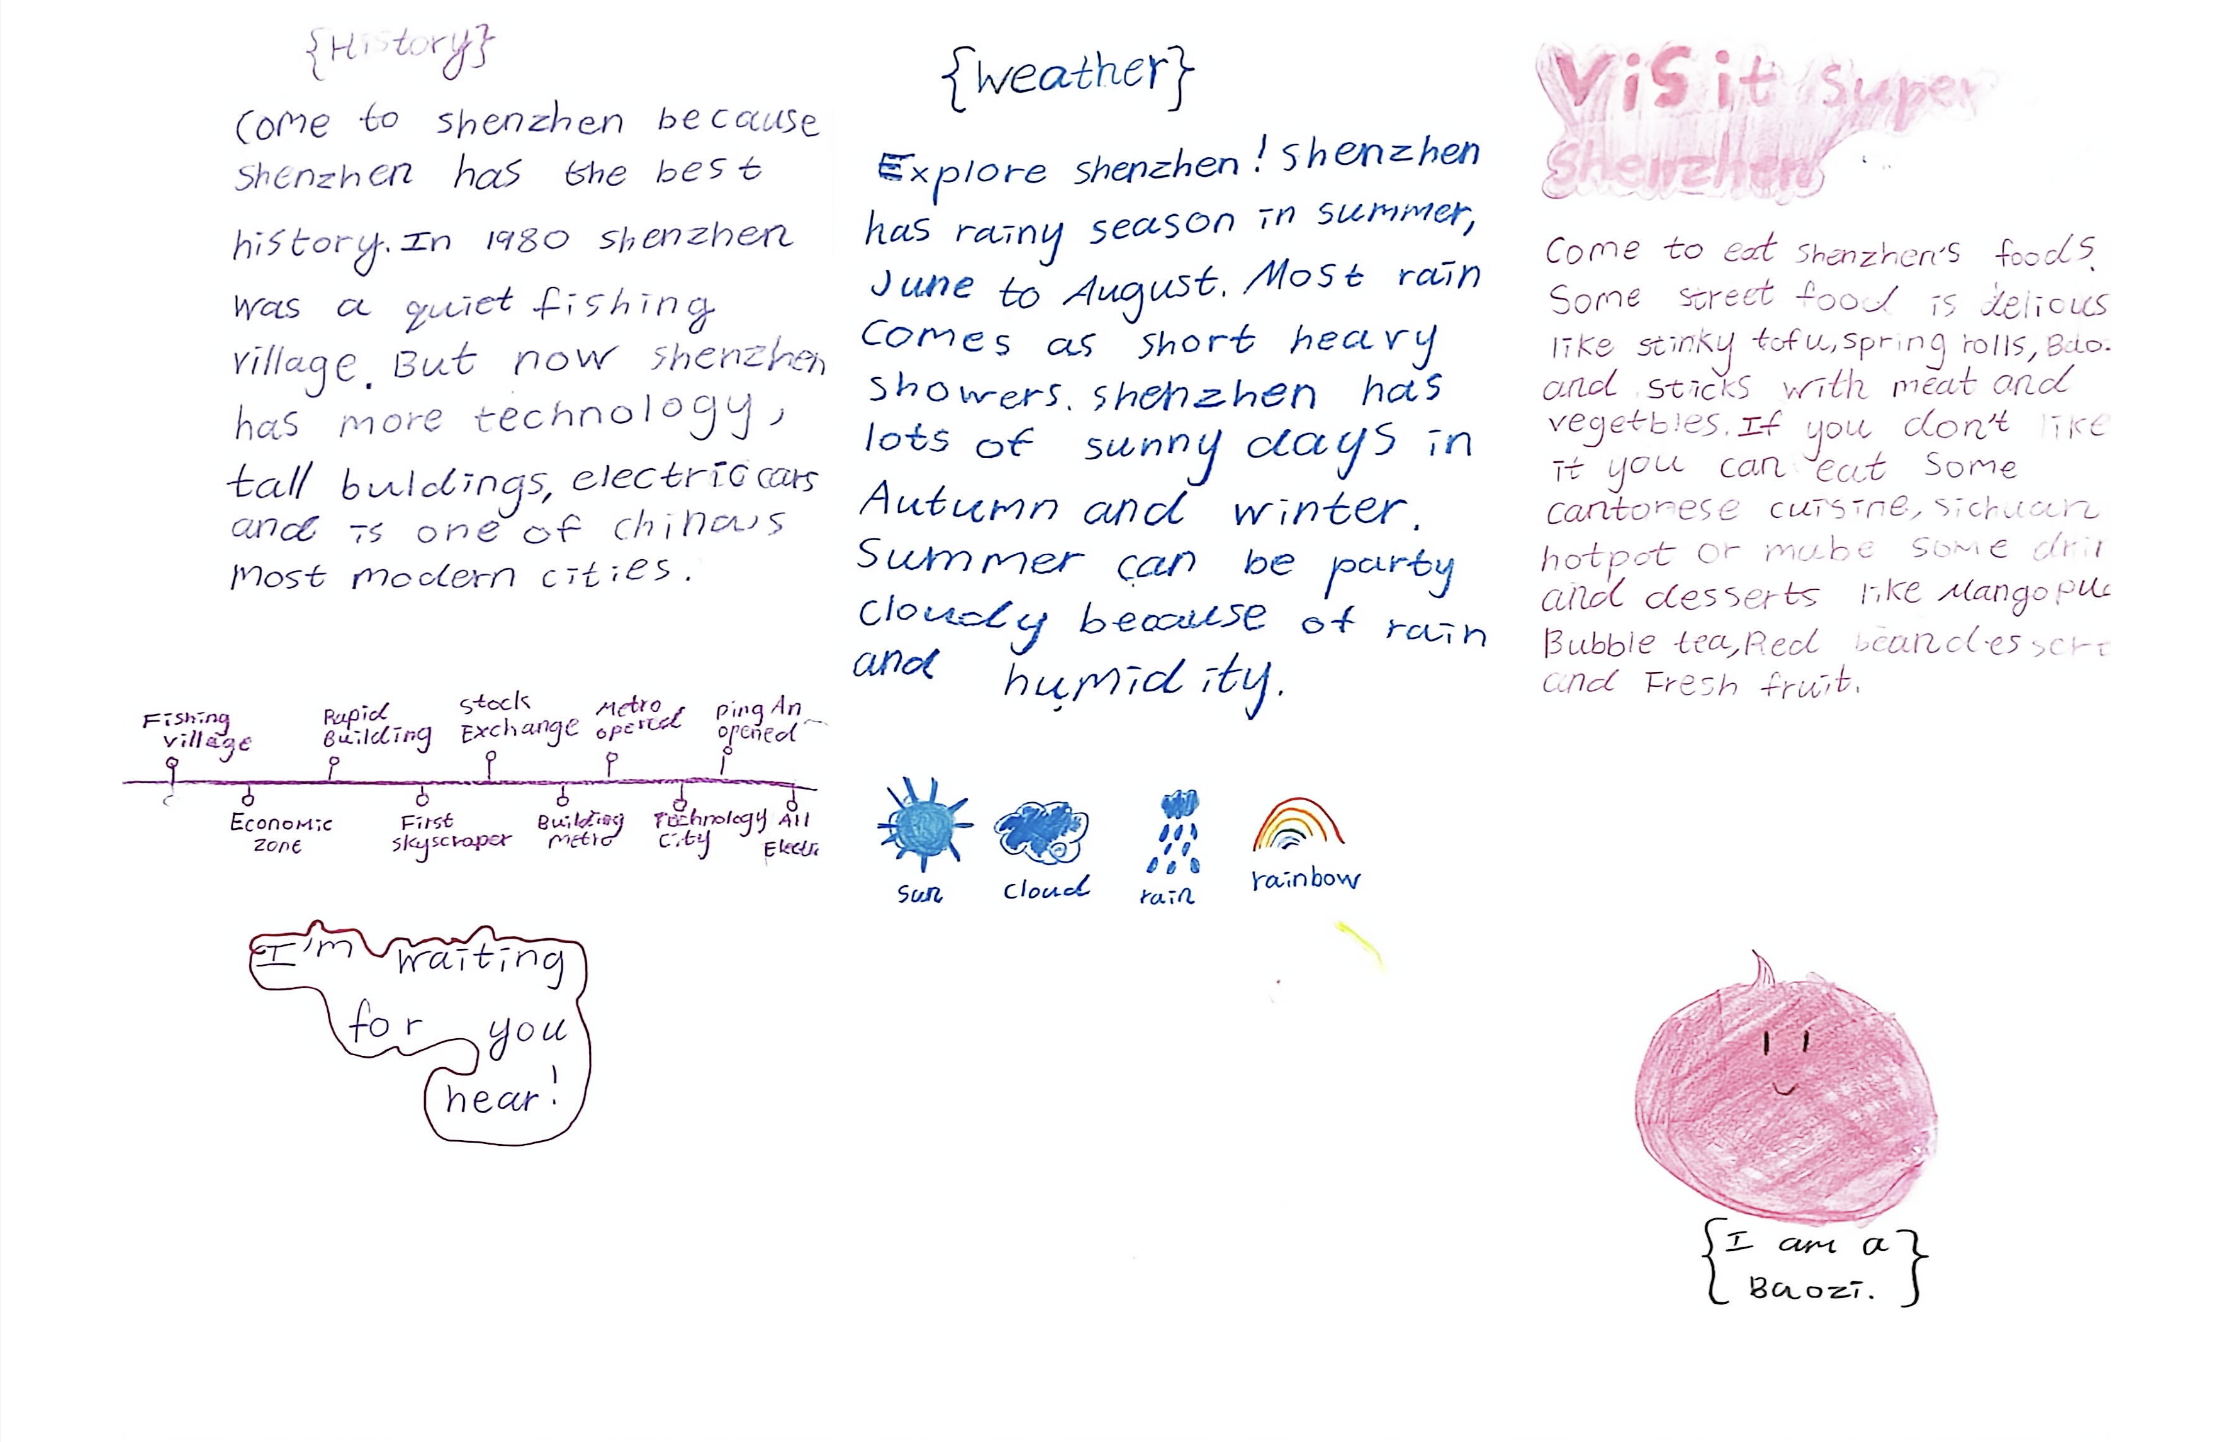 {History}
Come to shenzhen because
shenzhen has the best
history. In 1980 shenzhen
was a quiet fishing
village. But now shenzhen
has more technology,
tall buldings, electric cars
and is one of
most modern cities.
Fishing
village
Economic
zone
Rapid
Building
First
skyscraper
Stock
Exchange
Building
metro
Metro
opened
Technology
City
Ping An
opened
All
I'm waiting
for you
hear!
{weather}
Explore shenzhen! shenzhen
has rainy season in summer,
June to August. Most rain
comes as short heavy
showers. shenzhen has
lots of sunny days in
Autumn and winter.
Summer can be party
cloudy because of rain
and humidity.
sun
cloud
rain
rainbow
Visit super
shenzhen
Come to eat shenzhen's foods.
Some street food is delious
like stinky tofu, spring rolls, Bao.
and sticks with meat and
vegetbles. If you don't like
it you can eat some
cantonese cuisine, sichuan
hotpot or mabe some
and desserts like Mango
Bubble tea, Red bean
and Fresh fruit.
{I am a
Baozi.}